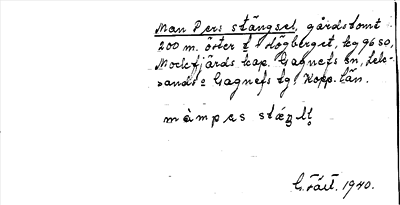 Man Pers stängsel, gårdstomt
200 m. öster t dögberget, kg 9650,
Mockfjärds kap. Gagnefs sn, Lek-
sands o Gagnefs tg. Kopp. län.
màmpas
G. 1940.